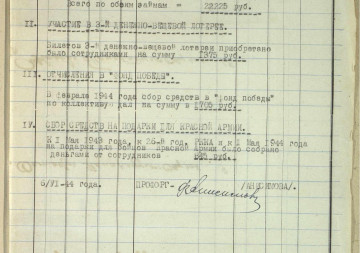 Всего по обоим займам = 22225 руб.
II. УЧАСТИЕ В 3-Й ДЕНЕЖНО-ВЕЩЕВОЙ ЛОТЕРЕЕ.
Билетов 3-й денежно-вещевой лотереи приобретено
было сотрудниками на сумму 1375 руб.
III. ОТЧИСЛЕНИЯ В "ФОНД ПОБЕДЫ".
В феврале 1944 года сбор средств в "Фонд победы"
по коллективу дал на сумму в 1705 руб.
IV. СБОР СРЕДСТВ НА ПОДАРКИ ДЛЯ КРАСНОЙ АРМИИ.
К 1 Мая 1943 года, к 26-й год. РККА и к 1 Мая 1944
на подарки для бойцов Красной Армии было собрано
деньгами от сотрудников руб.
6/VI-44 года. ПРОФОРГ- /АНИСИМОВА/.